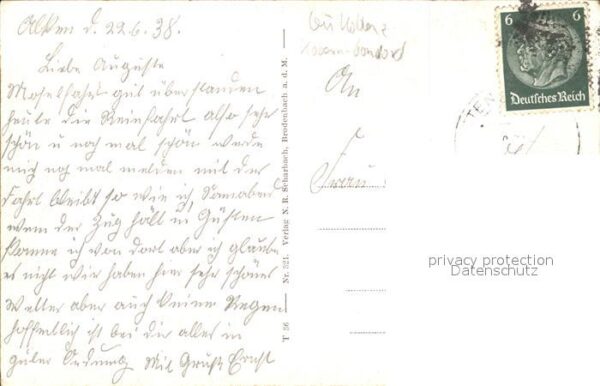 Alken d. 22.6.38.
Liebe Auguste
Moselfahrt gut überstanden
heute die Reinfahrt also sehr
schön u noch mal schön werde
mich noch mal melden mit der
Fahrt bleibt so wie ich, Sonnabend
wenn der Zug hält in Güsten
komme ich von dort aber ich glaube
es nicht wir haben hier sehr schönes
Wetter aber auch keinen Regen
hoffentlich ist bei dir alles in
guter Ordnung Mit Gruß Ernst
T 56
Nr. 321. Verlag N. R. Scharbach, Brodenbach a. d. M.
An
Frau
6 6
Deutsches Reich
privacy protection
Datenschutz